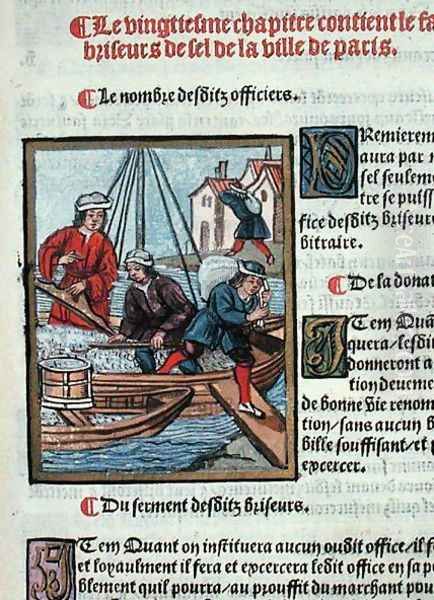 Le vingtiesme chapitre contient le fa
briseurs de sel de la ville de paris.
Le nombre desditz officiers.
PRemierem
aura par
sel seulemē
tre se puiss
fice desditz briseurs
bitraire.
De la donat
ITem Quāt
quera / lesdi
donneront a
tion deueme
de bonne vie renom
tion / sans aucun b
bille souffisant / et p
excercer.
Du serment desditz briseurs.
ITem Quant on instituera aucun oudit office / il fe
et loyaulment il fera et excercera ledit office en sa p
blement quil pourra / au prouffit du marchant pou